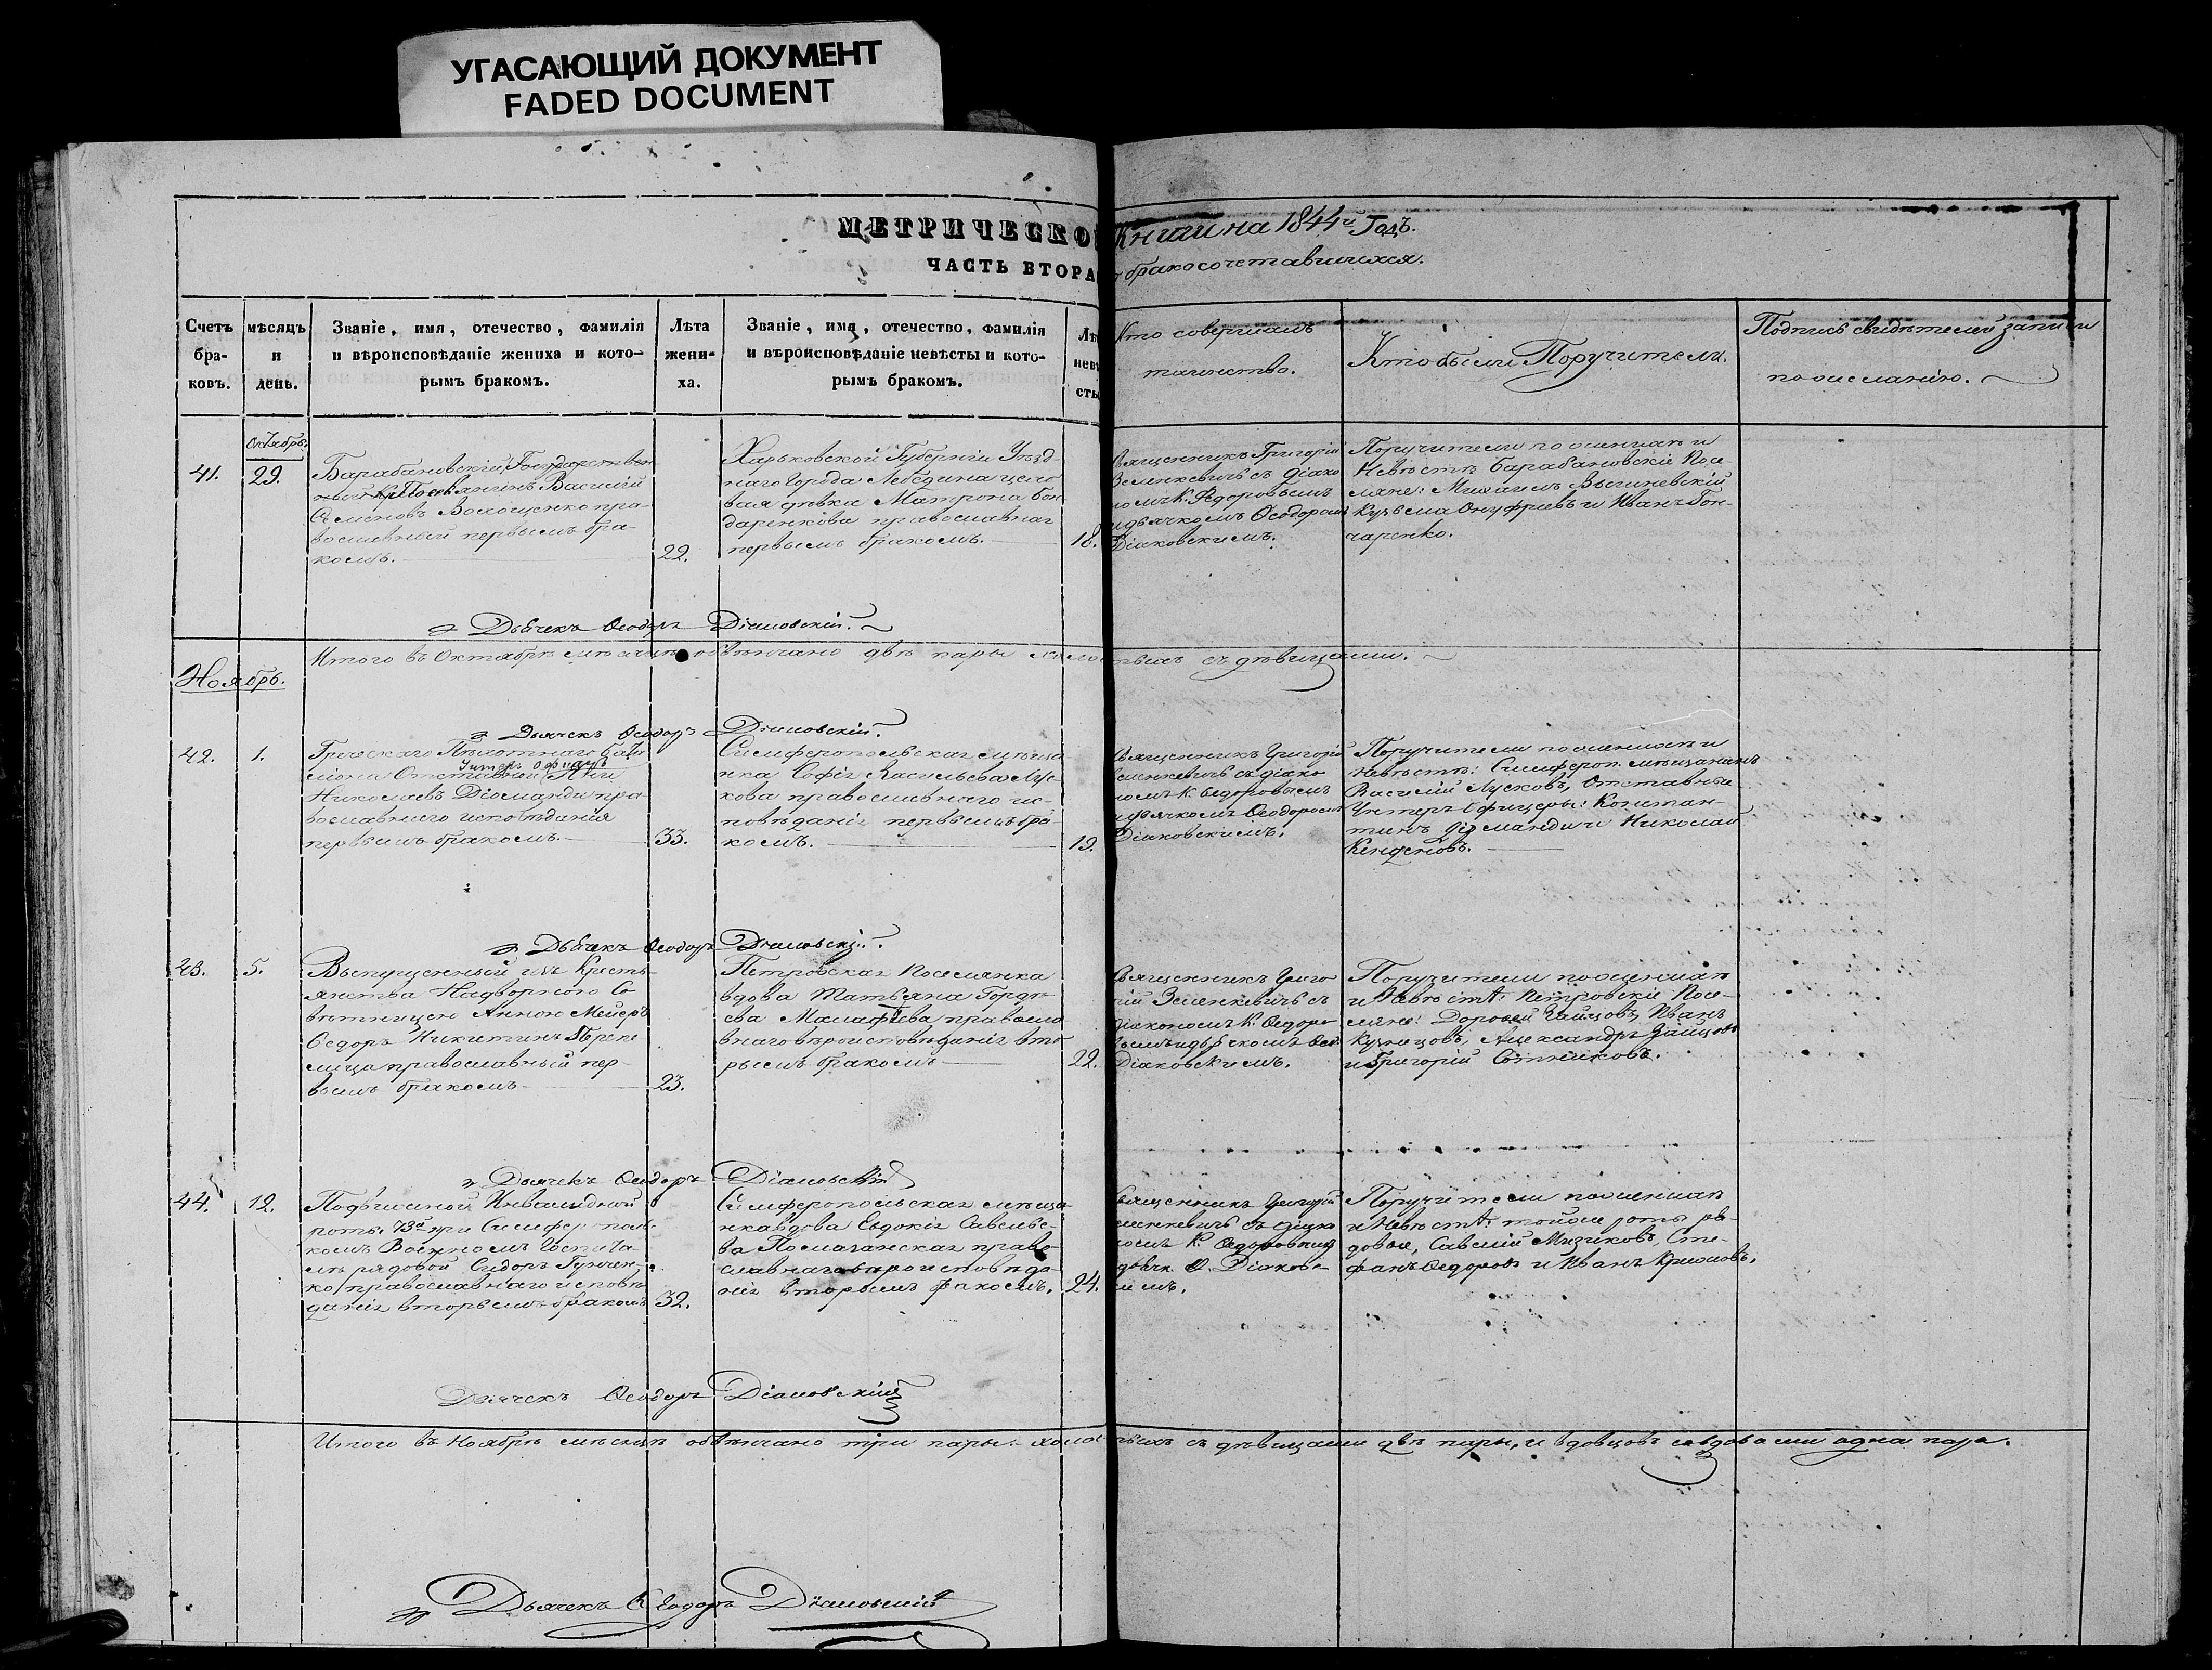 УГАСАЮЩИЙ ДОКУМЕНТ
FADED DOCUMENT
МЕТРИЧЕСКО Книги на 1844й Годъ.
ЧАСТЬ ВТОРА бракосочетавшихся.
Счетъ бра-ковъ.
мѣсяцъ и день.
Званіе, имя, отечество, фамилія
и вѣроисповѣданіе жениха и кото-
рымъ бракомъ.
Лѣта
жени-
ха.
Званіе, имя, отечество, фамилія
и вѣроисповѣданіе невѣсты и кото-
рымъ бракомъ.
Лѣ
нев
сты
Кто совершалъ
таинство.
Кто были Поручители.
Подпись свидѣтелей записи
по желанію.
Октябрь.
41.
29.
Барабановскій Государствен
Поселянинъ Василій
Семеновъ Волощенко пра-
вославный первымъ бра-
комъ.
22.
Харьковской Губерніи Уѣзд-
наго города Лебедина
вая дѣвка Матрона Бон
даренкова православная
первымъ бракомъ.
18.
вященникъ Григорій
Зеленкевичъ съ діако
номъ К. Федоровымъ
и дьячкомъ Ѳеодоромъ
Діаковскимъ.
Поручители по женихѣ и
Невѣстѣ Барабановскіе Посе-
ляне: Михаилъ Вышневскій
Кузьма Онуфріевъ и Иванъ Гон-
чаренко.
Дьячекъ Ѳеодоръ Діаковскій.
Итого въ Октябрѣ мѣсяцѣ обвѣнчано двѣ пары холостыхъ съ дѣвицами.
Ноябрь.
Дьячекъ Ѳеодоръ Діаковскій.
42.
1.
Греческаго Пѣхотнаго Бата
Унтеръ Офицеръ
ліона Отставной
Николаевъ Діаманди пра-
вославнаго исповѣданія
первымъ бракомъ
33.
Симферопольская мѣща
нка Софія Васильева Лус-
кова православнаго ис-
повѣданія первымъ бра-
комъ.
19.
вященникъ Григорій
еленкевичъ съ діако
номъ К. Ѳедоровымъ
и дьячкомъ Ѳеодоромъ
Діаковскимъ.
Поручители по женихѣ и
невѣстѣ: Симфероп. мѣщанинъ
Василій Лусковъ, Отставные
Унтеръ Офицеры: Констан-
тинъ Діаманди и Николай
Дьячекъ Ѳеодоръ Діаковскій.
43.
5.
Выпущенный изъ Кресть-
янства Надворною Со
вѣтницею Анною Мейеръ
Ѳедоръ Никитинъ
православный пер-
вымъ бракомъ
23.
Петровская Поселянка
вдова Татьяна Гордѣ-
ева православ
внаго вѣроисповѣданія вто
рымъ бракомъ
22.
вященникъ Григо
рій Зеленкевичъ съ
діакономъ К. Ѳедоро
вымъ и дьячкомъ Ѳео.
Діаковскимъ.
Поручители по женихѣ
и Невѣстѣ: Петровскіе Посе-
ляне: Дороѳей Зайцовъ, Иванъ
Кузнецовъ, Александръ Зайцовъ
и Григорій Сотниковъ.
Дьячекъ Ѳеодоръ Діаковскій
44.
12.
Подвижной Инвалидной
роты №73й при Симферополь-
комъ Военномъ Госпита
лѣ рядовой Сидоръ
ко православнаго исповѣ
данія вторымъ бракомъ
32.
Симферопольская мѣща-
нка вдова Евдокія Савелье-
ва право-
славнаго вѣроисповѣда-
нія вторымъ бракомъ.
24.
вященникъ Григорій
еленкевичъ съ діако
номъ К. Ѳедоровымъ
и дьячк. Ѳ. Діаковс-
кимъ.
Поручители по женихѣ
и Невѣстѣ: тойже роты ря-
довые, Савелій Музиковъ, Сте-
фанъ Ѳедоровъ и Иванъ
Дьячекъ Ѳеодоръ Діаковскій
Итого въ Ноябрѣ мѣсяцѣ обвѣнчано три пары: холостыхъ съ дѣвицами двѣ пары, и вдовцовъ съ вдовами одна пара.
Дьячекъ Ѳеодоръ Діаковскій